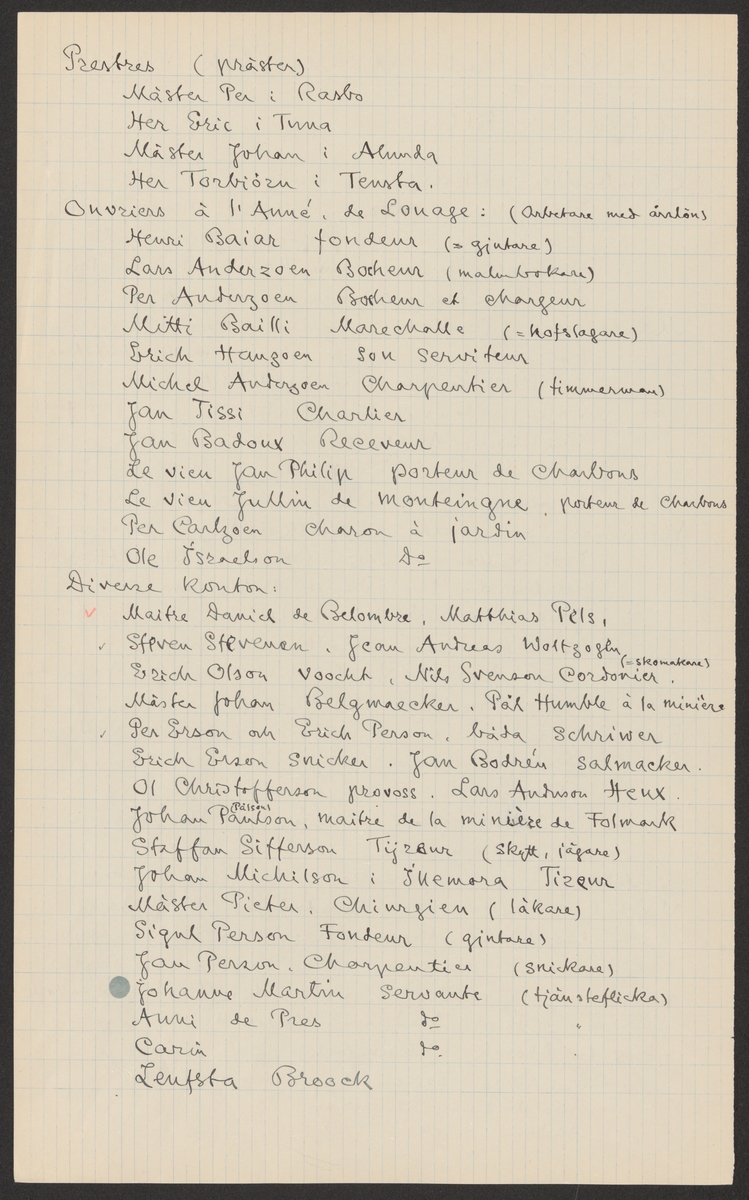 Prestres (präster)
Mäster Per i Rasbo
Her Eric i Tuna
Mäster Johan i Alunda
Her Torbiörn i Tensta.
Ouvriers à l'Anné, de Louage: (arbetare med årslön)
Henri Baiar fondeur (= gjutare)
Lars Anderzoen Bocheur (malmbokare)
Per Anderzoen Bocheur et chargeur
Mitti Bailli Marechalle (= hofslagare)
Erich Hanzoen son serviteur
Michel Anderzoen Charpentier (timmerman)
Jan Tissi Charlier
Jan Badoux Receveur
Le vieu Jan Philip porteur de Charbons
Le vieu Jullin de monteingne, porteur de Charbons
Per Carlzoen charon à jardin
Ole Israelson do
Diverse konton:
Maitre Daniel de Belombre, Matthias Pels,
Steven Stevenen, Jean Andreas Woltzogen,
(= skomakare)
Erich Olson voocht, Nils Svenson Cordonier,
Mäster Johan Belgmaecker. Pål Humble à la minière
Per Erson och Erich Person, båda Schriwer
Erich Erson Snicker. Jan Bodrén Salmacker.
Ol Christofferson provoss. Lars Anduson Heux.
(Pålson)
Johan Paulson, maitre de la minière de Folmark
Staffan Sifferson Tijreur (skytt, jägare)
Johan Michilson i Ikemora Tireur
Mäster Pieter, Chirurgien (läkare)
Sigul Person Fondeur (gjutare)
Jan Person. Charpentier (snickare)
Johanne Martin Servante (tjänsteflicka)
Anni de Pres do "
Carin do "
Leufsta Broock